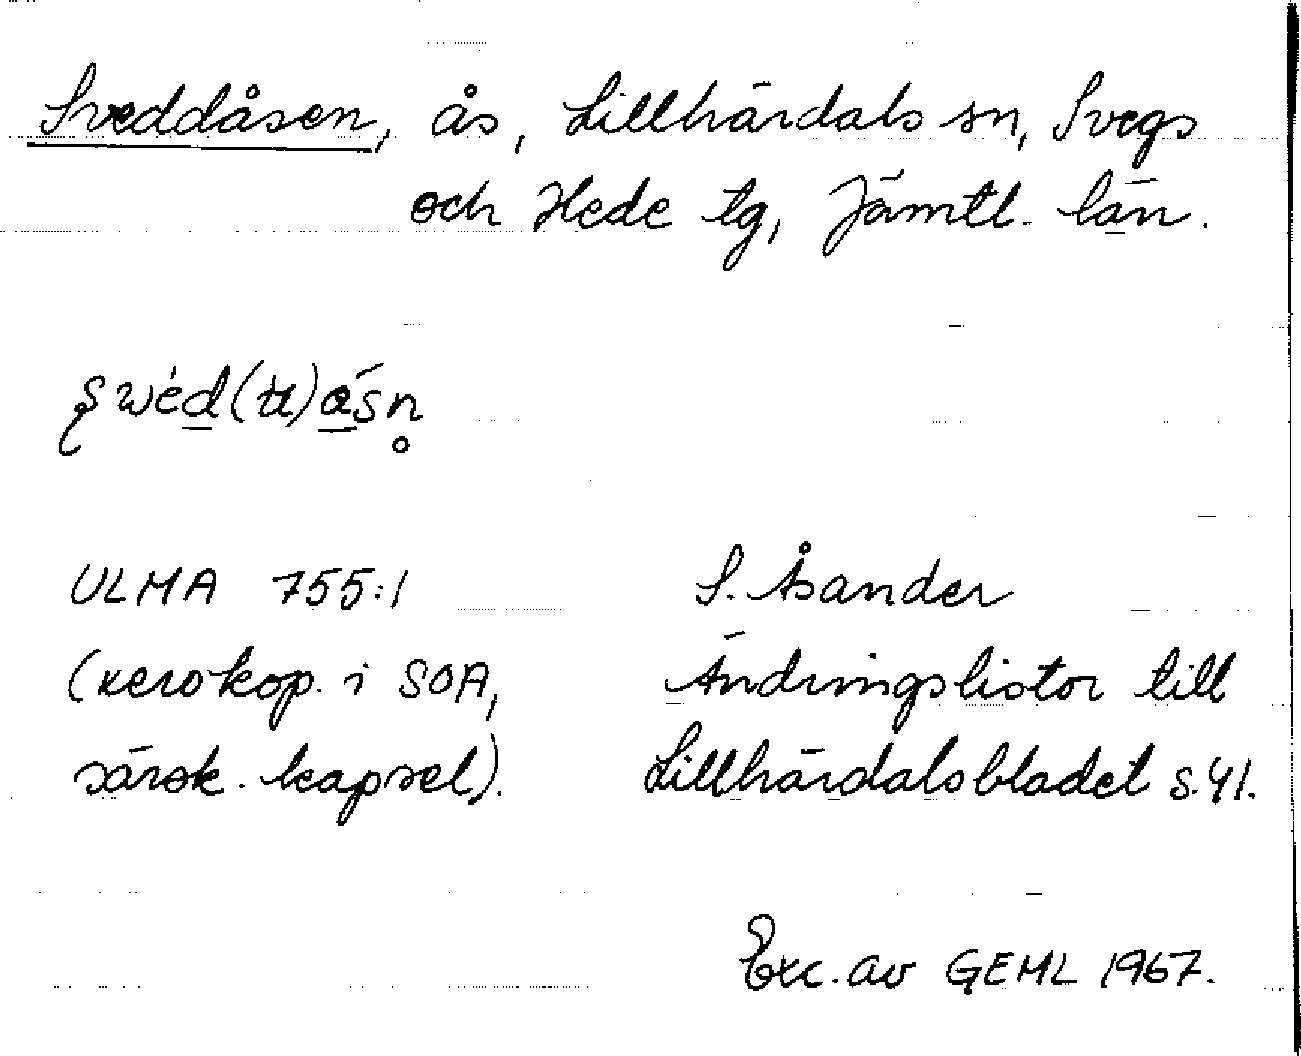 Sveddåsen, ås, Lillhärdals sn, Svegs
och Hede tg, Jämtl. län.
ULMA 755:1
(xerokop. i SOA,
särsk. kapsel).
S. Åsander
Ändringslistor till
Lillhärdalsbladet s.41.
Exc. av GEML 1967.